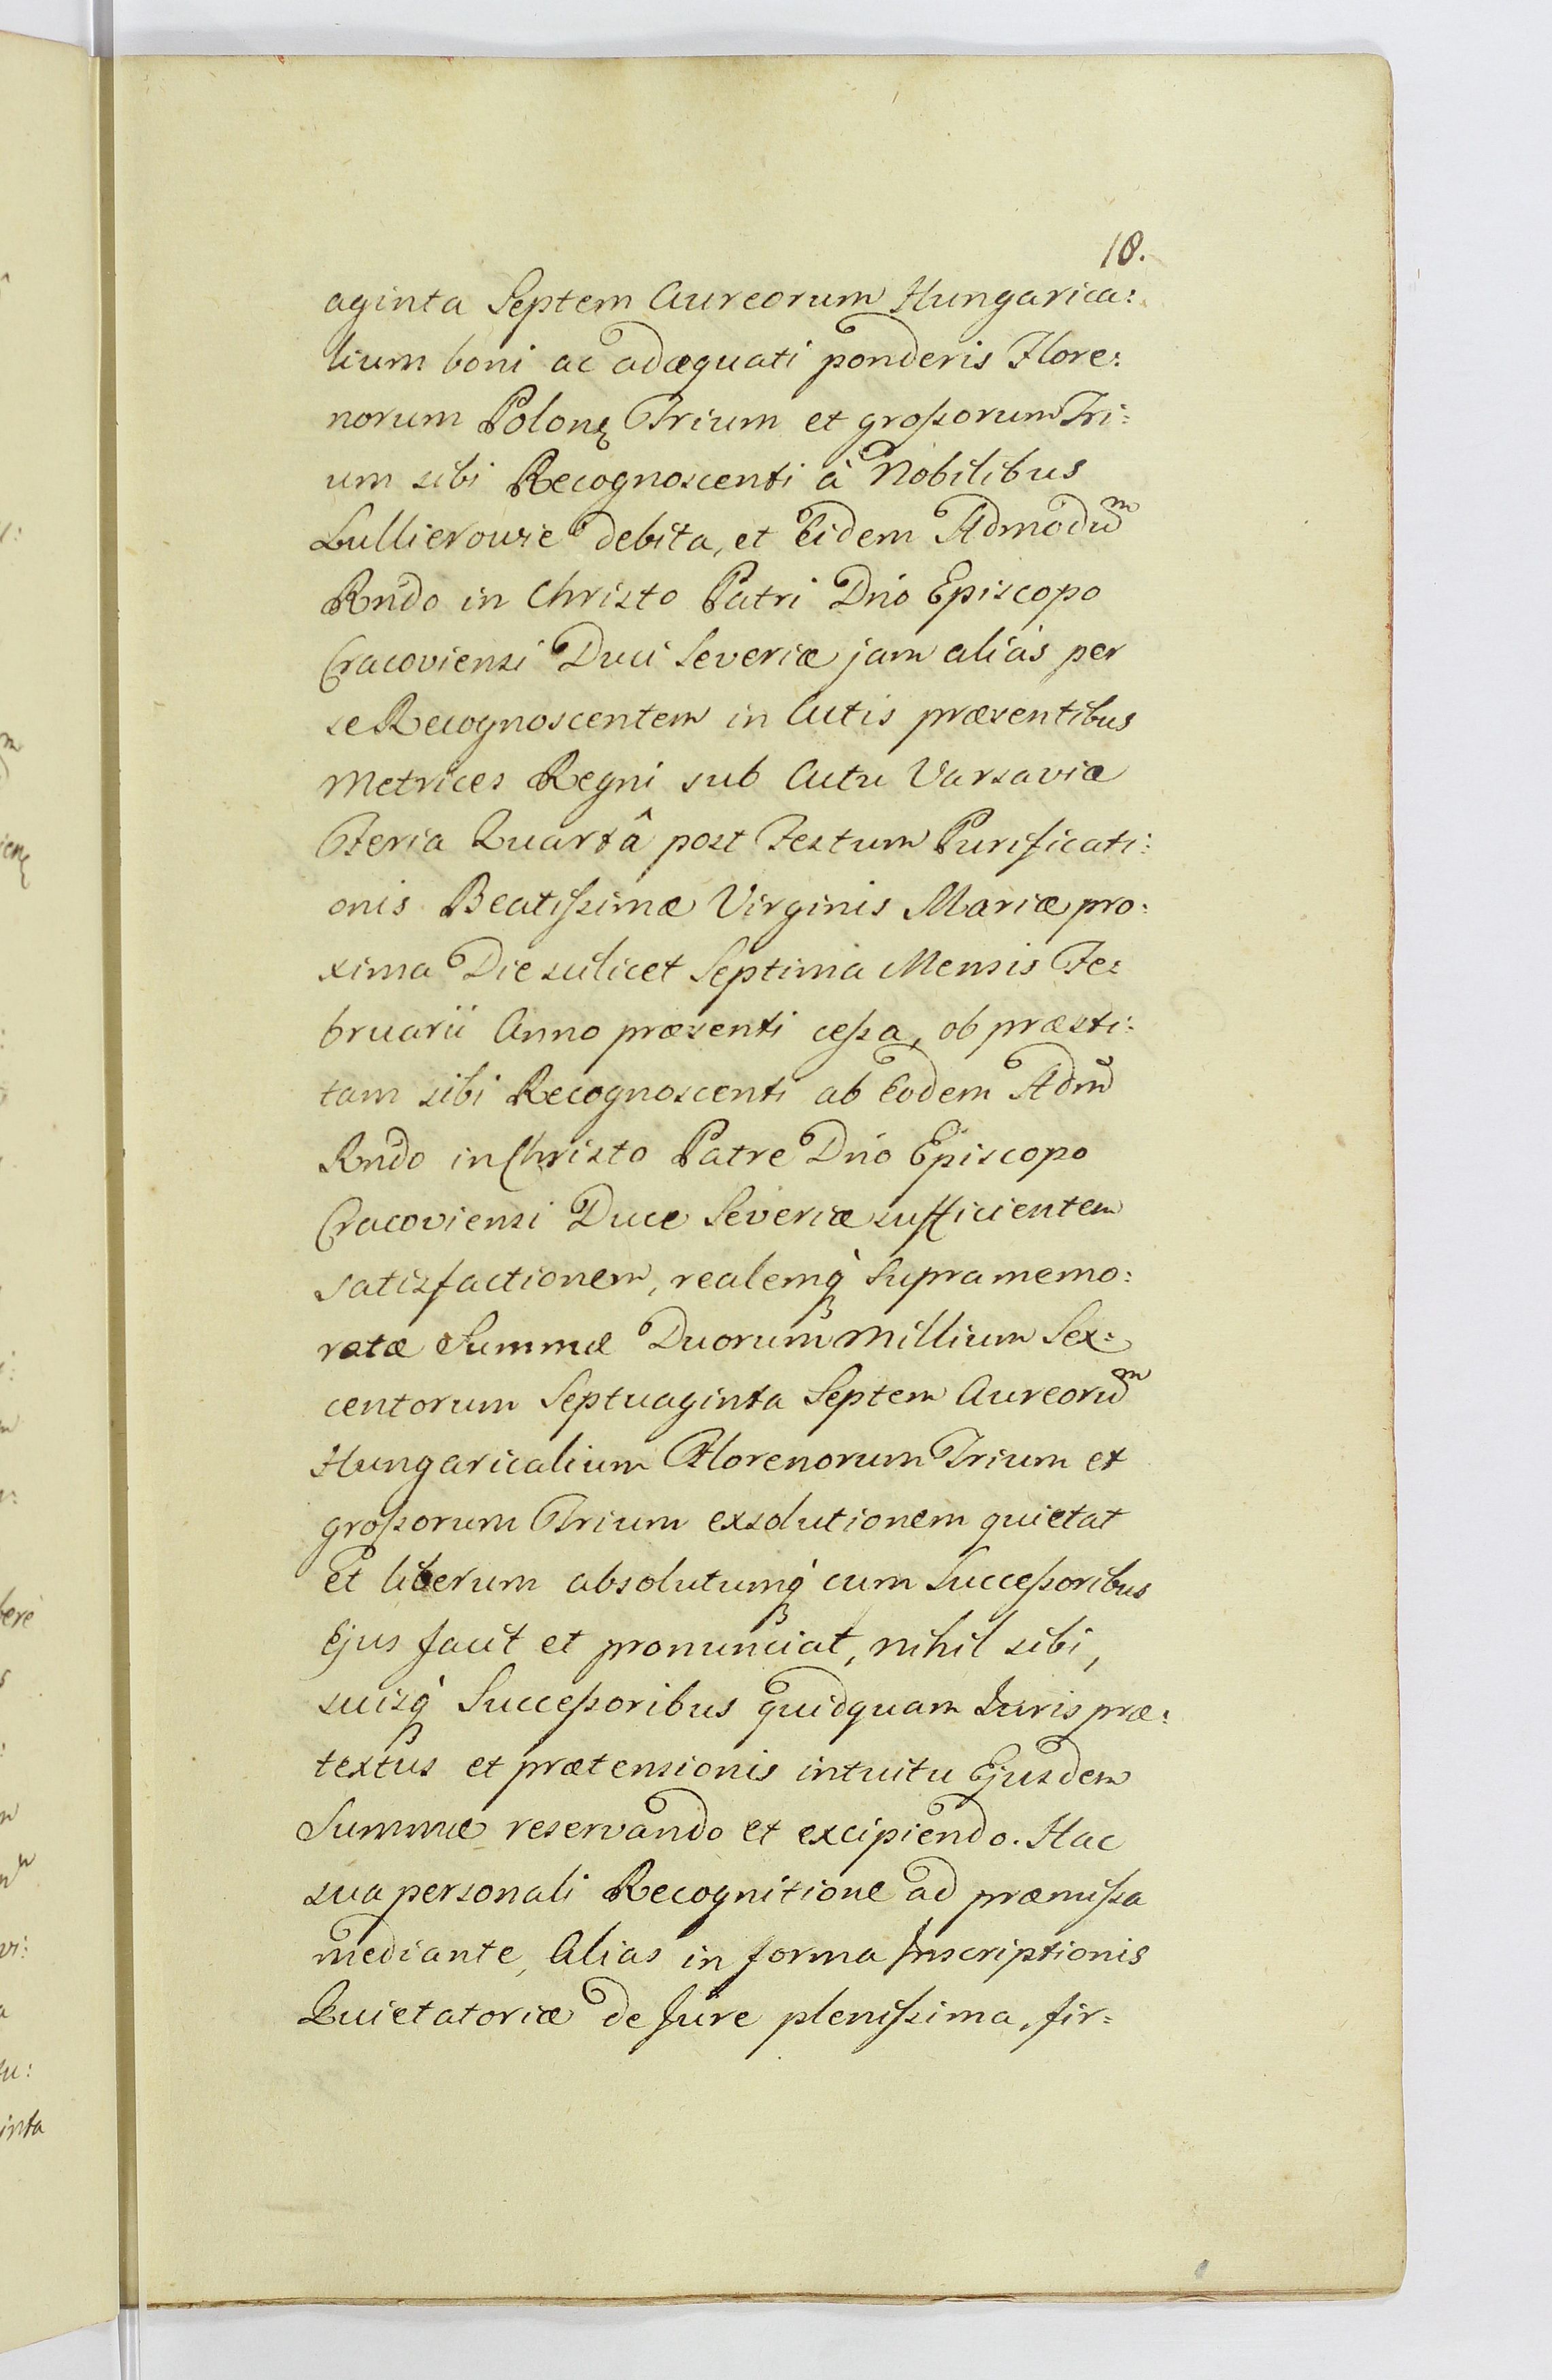 18.
aginta Septem Aureorum Hungarica:
lium boni ac adæquati ponderis Flore:
norum Polonę Trium et grossorum Tri:
um sibi Recognoscenti à Nobilibus
debita, et Eidem Admodu͞m
Rndo in Christo Patri Dno Episcopo
Cracoviensi Duci Severiæ jam aliàs per
se Recognoscentem in Actis præsentibus
Metrices Regni sub Actu Varsaviæ
Feria Quartâ post Festum Purificati:
onis Beatissimæ Virginis Mariæ pro:
xima Die scilicet Septima Mensis Fe:
bruarii Anno præsenti cessa, ob præsti:
tam sibi Recognoscenti ab Eodem Adm̃
Rndo in Christo Patre Dno Episcopo
Cracoviensi Duce Severiæ sufficientem
satisfactionem, realemq̀ Supramemo:
ratæ Summæ Duorum Millium Sex:
centorum Septuaginta Septem Aureoru͞m
Hungaricalium Florenorum Trium et
grossorum Trium exsolutionem quietat
et liberum absolutumq̀ cum Successoribus
Ejus facit et pronunciat, nihil sibi,
suisq̀ Successoribus quidquam Juris præ:
textus et prætensionis intuitu Ejusdem
Summæ reservando et excipiendo. Hac
sua personali Recognitione ad præmissa
mediante, Alias in forma Inscriptionis
Quietatoriæ de Jure plenissima, fir=